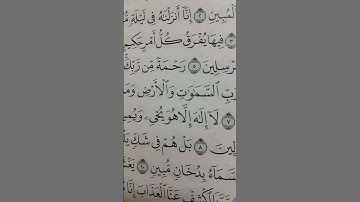 ٱلْمُبِينِ ٢ إِنَّآ أَنزَلْنَٰهُ فِى لَيْلَةٍ
٣ فِيهَا يُفْرَقُ كُلُّ أَمْرٍ حَكِيمٍ
مُرْسِلِينَ ٥ رَحْمَةً مِّن رَّبِّكَ
رَبِّ ٱلسَّمَٰوَٰتِ وَٱلْأَرْضِ وَمَا
٧ لَآ إِلَٰهَ إِلَّا هُوَ يُحْىِۦ وَيُمِيتُ
٨ بَلْ هُمْ فِى شَكٍّ
ٱلسَّمَآءُ بِدُخَانٍ مُّبِينٍ ١٠ يَغْشَى
رَّبَّنَا ٱكْشِفْ عَنَّا ٱلْعَذَابَ إِنَّا